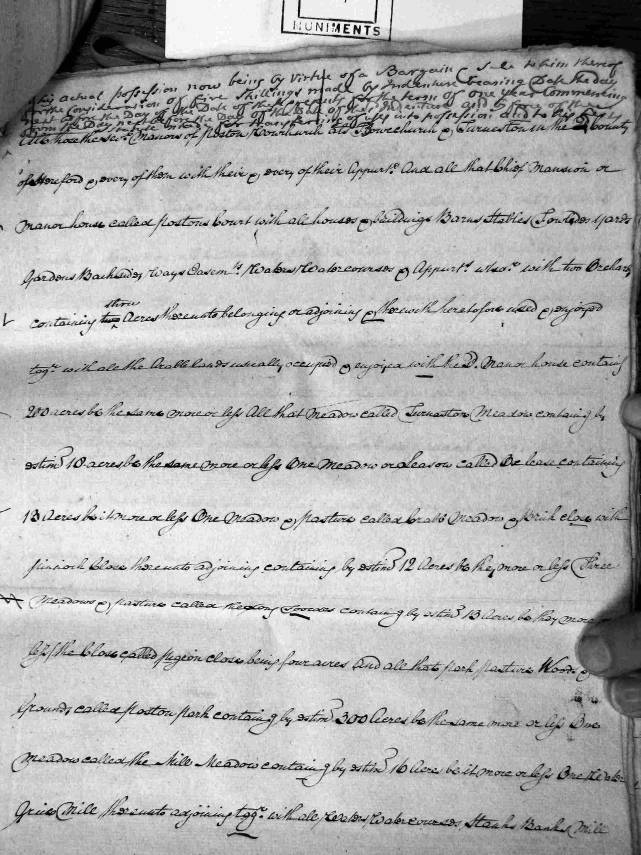 MUNIMENTS
his actual possession now being by Virtue of a Bargain & Sale to him thereof
the Consideration of five Shillings made by Indenture bearing Date the day
next before the Day of the Date of these presents for the term of one year Commencing
from the Day next before the Day of the Date of the same Indenture and by force of the
for transferring of uses into possession and to his
All those the sd. Manors of Poston Vowchurch als Vowchurch & Turnaston in the County
of Hereford & every of them with their & every of their Appurts. And all that Chief Mansion or
Manor house called Postons Court with all houses & buildings Barns Stables Yards
Gardens Backsides Ways Easemts. Waters Watercourses & Appurts. with two Orchards
three
containing two Acres thereunto belonging or adjoining & therewith heretofore used & enjoyed
togr. with all the Arable lands usually occupied & enjoyed with the sd. Manor house containg
200 acres be the same more or less All that Meadow called Turnaston Meadow containing by
estimn. 18 acres be the same more or less One Meadow or Leasow called Ox lease containing
13 Acres be it more or less One Meadow & pasture called Meadow & close with
close thereunto adjoining containing by estimn. 12 Acres be they more or less Three
Meadows & pasture called the long containg by estimn. 13 Acres be they more or
less the Close called pigeon close being four acres And all that park pasture Woods &
Grounds called Poston park containg by estimn. 300 Acres be the same more or less One
Meadow called the Mill Meadow containg by estimn. 16 Acres be it more or less One Water
Grist Mill thereunto adjoining togr. with all Waters Watercourses Stanks Banks Mill